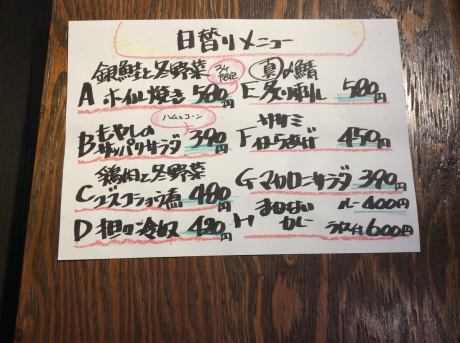 日替りメニュー
銀鮭と冬野菜
A ホイル焼き 580円
ハムとコーン
B もやしの
サッパリサラダ 390円
鶏肉と冬野菜
C ユズコショウ炒 480円
D 和の冷奴 420円
真〆鯖
E 炙り刺し 580円
ササミ
F からあげ 450円
G マカロニーサラダ 390円
H まかない
カレー
カレー 400円
ライス付 600円